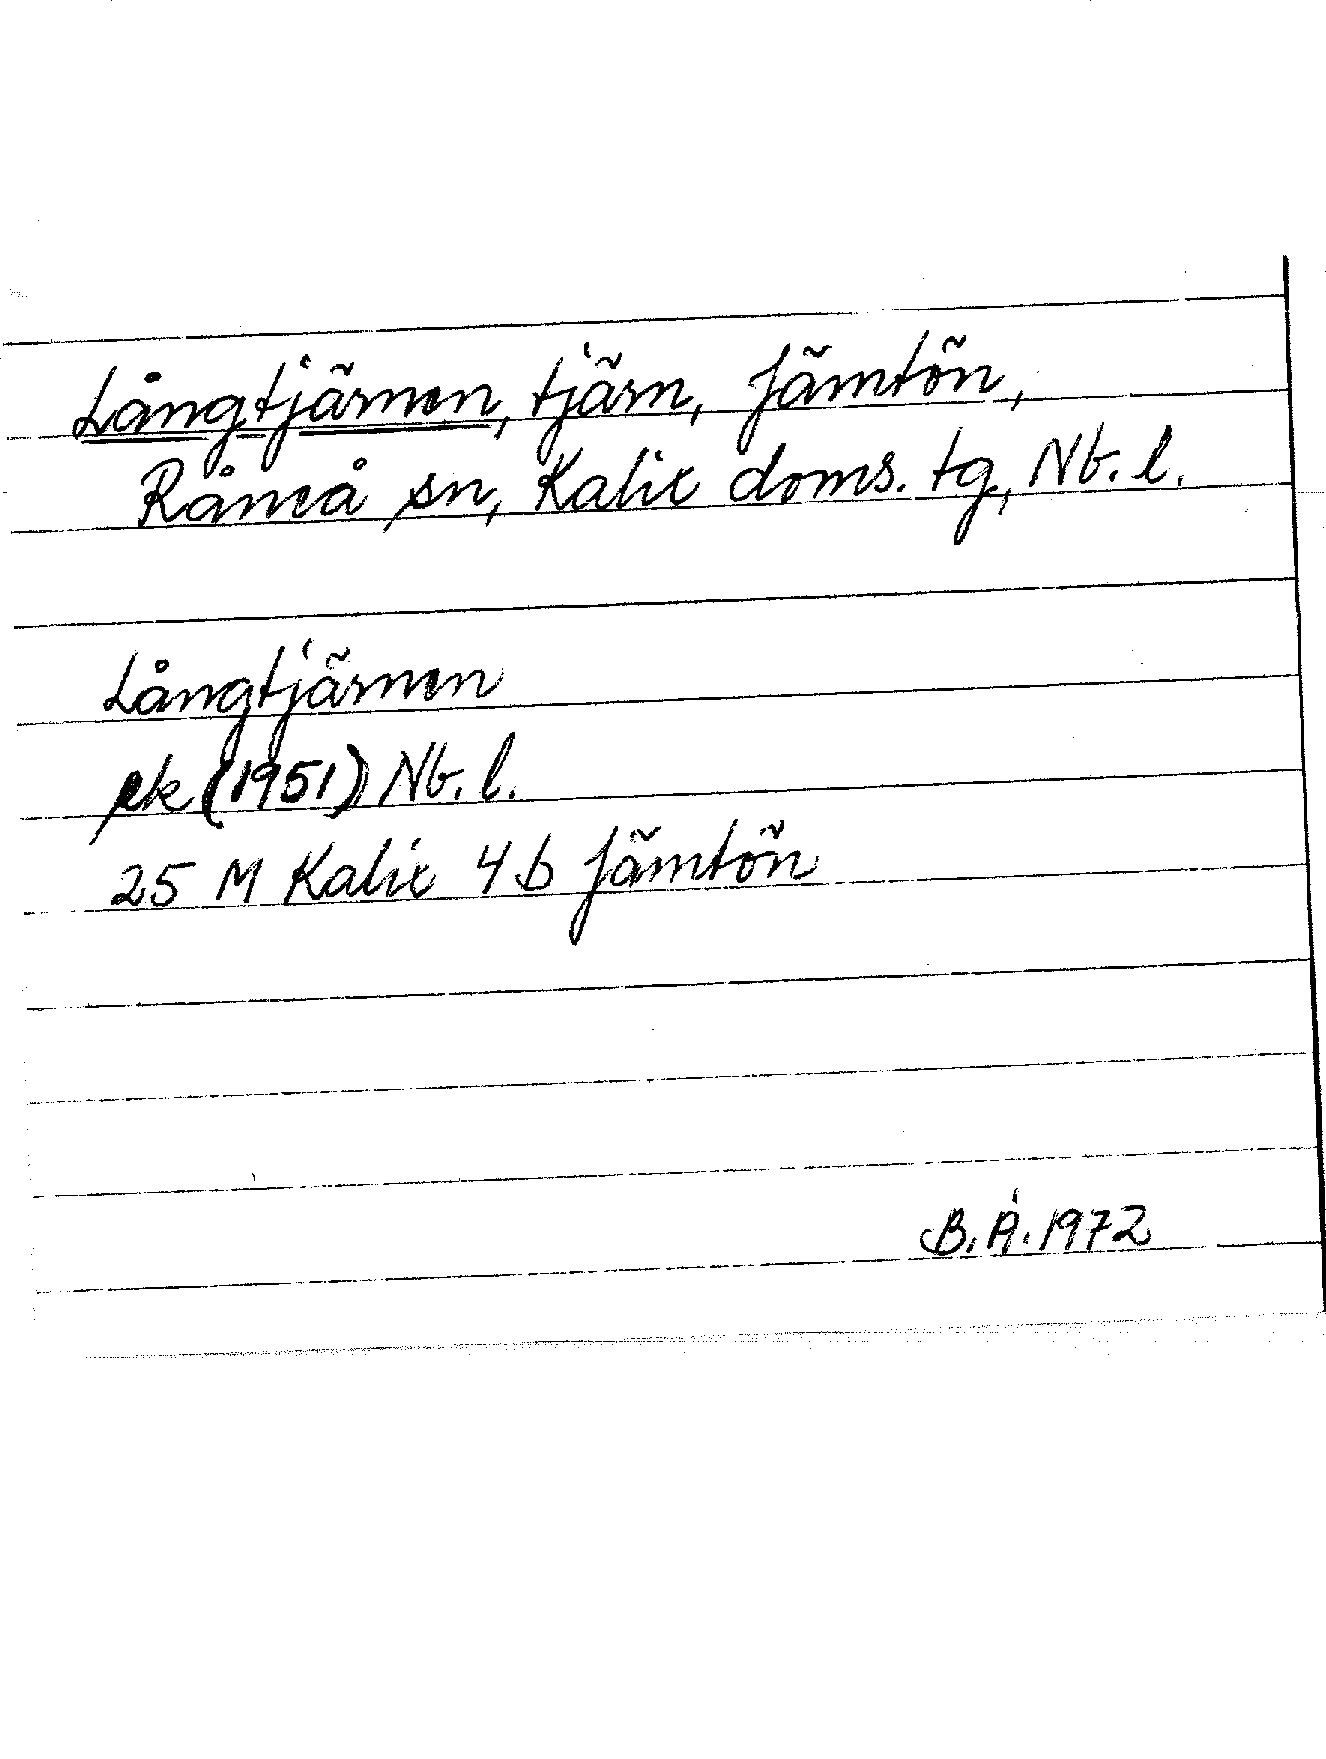 Långtjärnen, tjärn, Jämtön,
Råneå sn, Kalix doms. tg, Nb. l.
Långtjärnen
ek (1951) Nb. l.
25 M Kalix 4 b Jämtön
B.Å. 1972